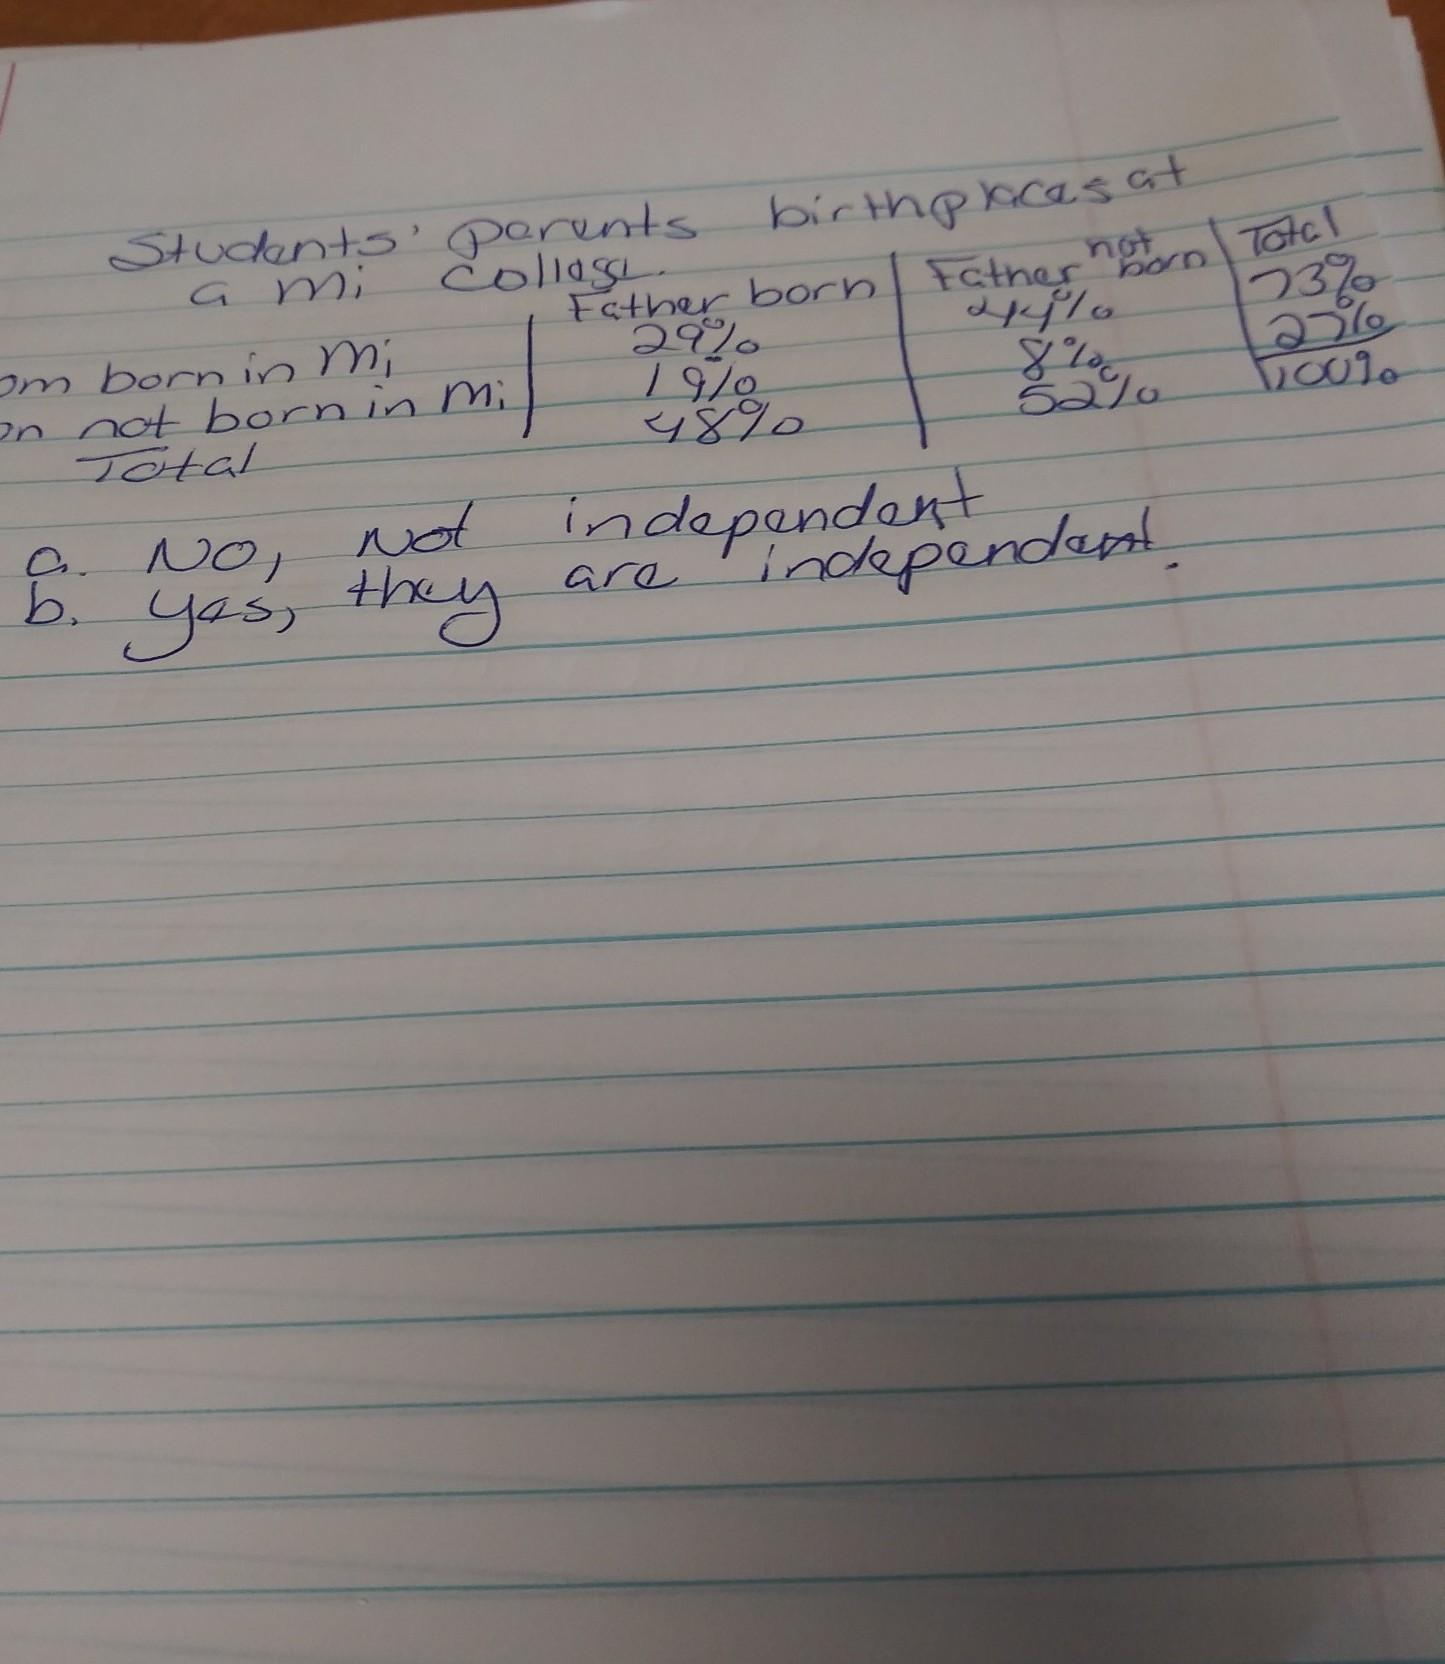 Students' parents birthplaces at
a mi college.
Father born | Father not born | Total
om born in mi | 29% | 44% | 73%
on not born in mi | 19% | 8% | 27%
Total 48% | 52% | 100%
a. No, Not independent
b. yes, they are independent.